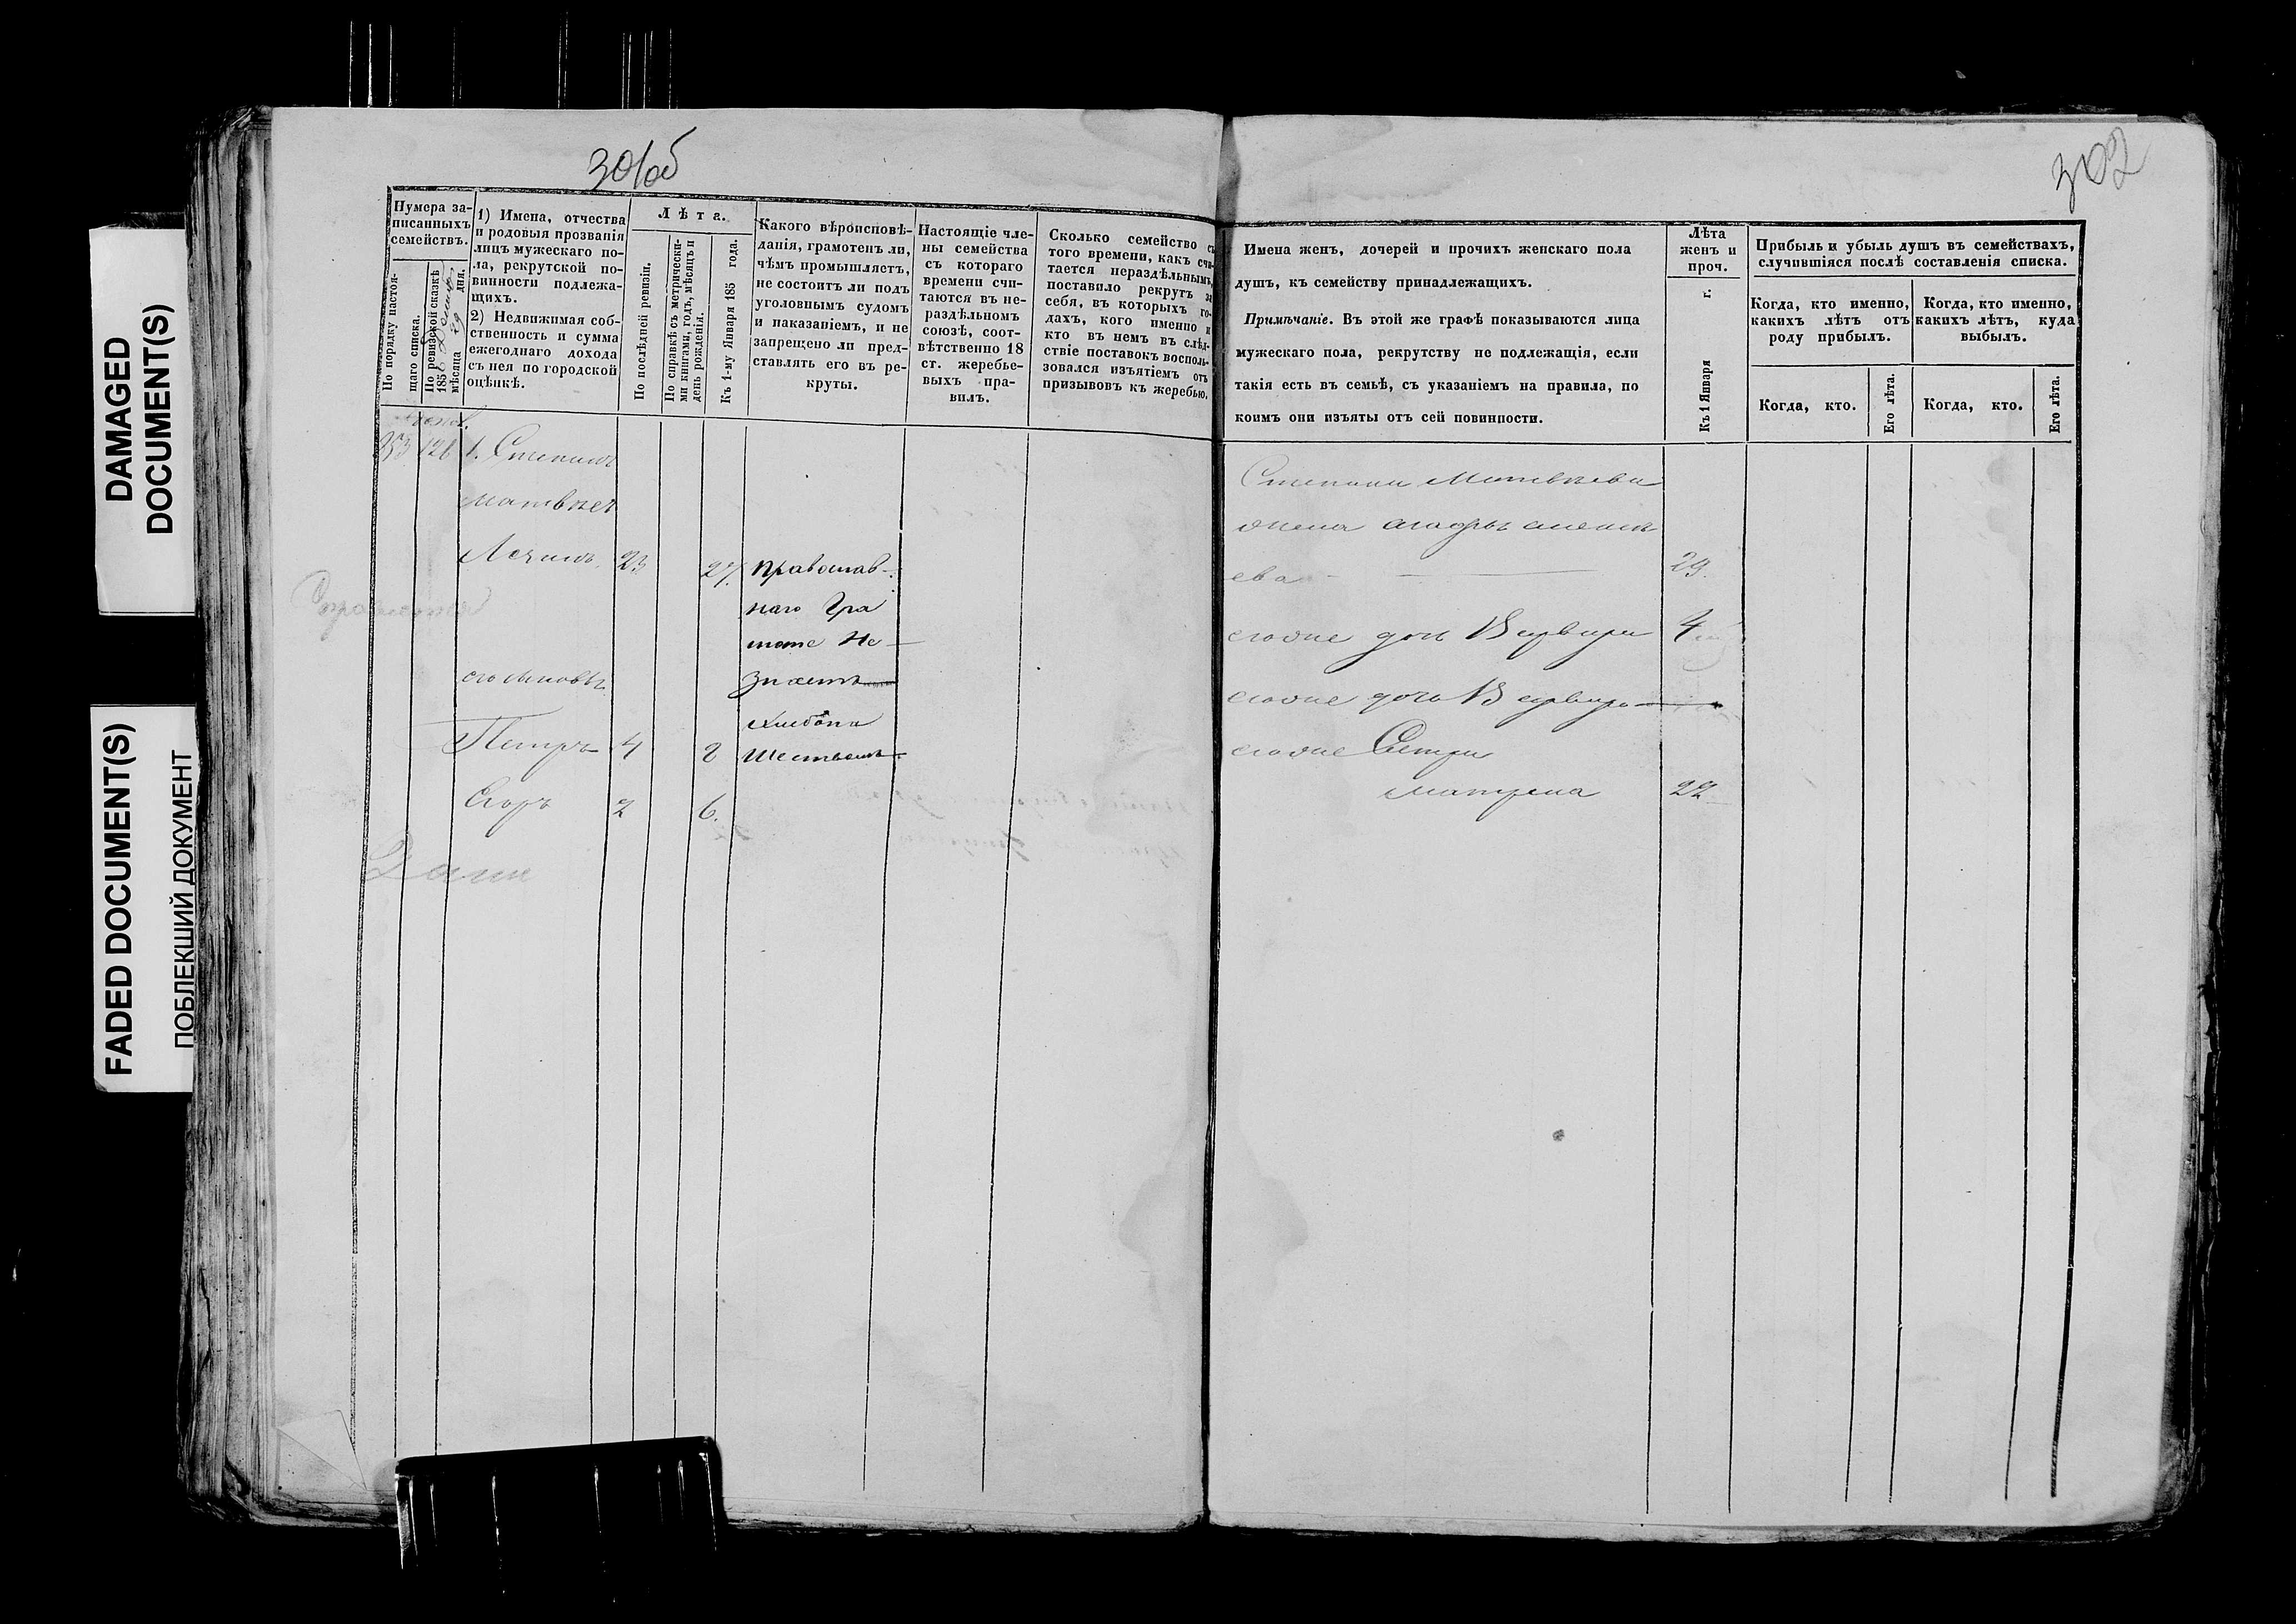 DAMAGED
DOCUMENT(S)
FADED DOCUMENT(S)
ПОБЛЕКШИЙ ДОКУМЕНТ
301об
Нумера за-
писанныхъ
семействъ.
По порядку настоя-
щаго списка.
По ревизской сказкѣ
185
мѣсяца 29 дня.
1) Имена, отчества
и родовыя прозванія
лицъ мужескаго по-
ла, рекрутской по-
винности подлежа-
щихъ.
2) Недвижимая соб-
ственность и сумма
ежегоднаго дохода
съ нея по городской
оцѣнкѣ.
Лѣта.
По послѣдней ревизіи.
По справкѣ съ метрически-
ми книгами, годъ, мѣсяцъ и
день рожденія.
Къ 1-му Января 185 года.
Какого вѣроисповѣ-
данія, грамотенъ ли,
чѣмъ промышляетъ,
не состоитъ ли подъ
уголовнымъ судомъ
и наказаніемъ, и не
запрещено ли пред-
ставлять его въ ре-
круты.
Настоящіе чле-
ны семейства
съ котораго
времени счи-
таются въ не-
раздѣльномъ
союзѣ, соот-
вѣтственно 18
ст. жеребье-
выхъ пра-
вилъ.
Сколько семейство съ
того времени, какъ счи-
тается нераздѣльнымъ,
поставило рекрутъ за
себя, въ которыхъ го-
дахъ, кого именно и
кто въ немъ въ слѣд-
ствіе поставокъ восполь-
зовался изъятіемъ отъ
призывовъ къ жеребью.
353 126 1. Степанъ
Матвѣев
23 27 Православ-
наго Гра
моте Не
Знаетъ
его сыновья
Хлебопа
Петръ 4 2 шествомъ
Егоръ 2 6.
302
Имена женъ, дочерей и прочихъ женскаго пола
душъ, къ семейству принадлежащихъ.
Примѣчаніе. Въ этой же графѣ показываются лица
мужескаго пола, рекрутству не подлежащія, если
такія есть въ семьѣ, съ указаніемъ на правила, по
коимъ они изъяты отъ сей повинности.
Лѣта
женъ и
проч.
Къ 1 Января г.
Прибыль и убыль душъ въ семействахъ,
случившіяся послѣ составленія списка.
Когда, кто именно,
какихъ лѣтъ отъ
роду прибылъ.
Когда, кто именно,
какихъ лѣтъ, куда
выбылъ.
Когда, кто.
Его лѣта.
Когда, кто.
Его лѣта.
Степана Матвѣева
жена
ева 29.
егоже дочь Варвара 4
егоже дочь Варвара
егоже Сестра
Матрена 22